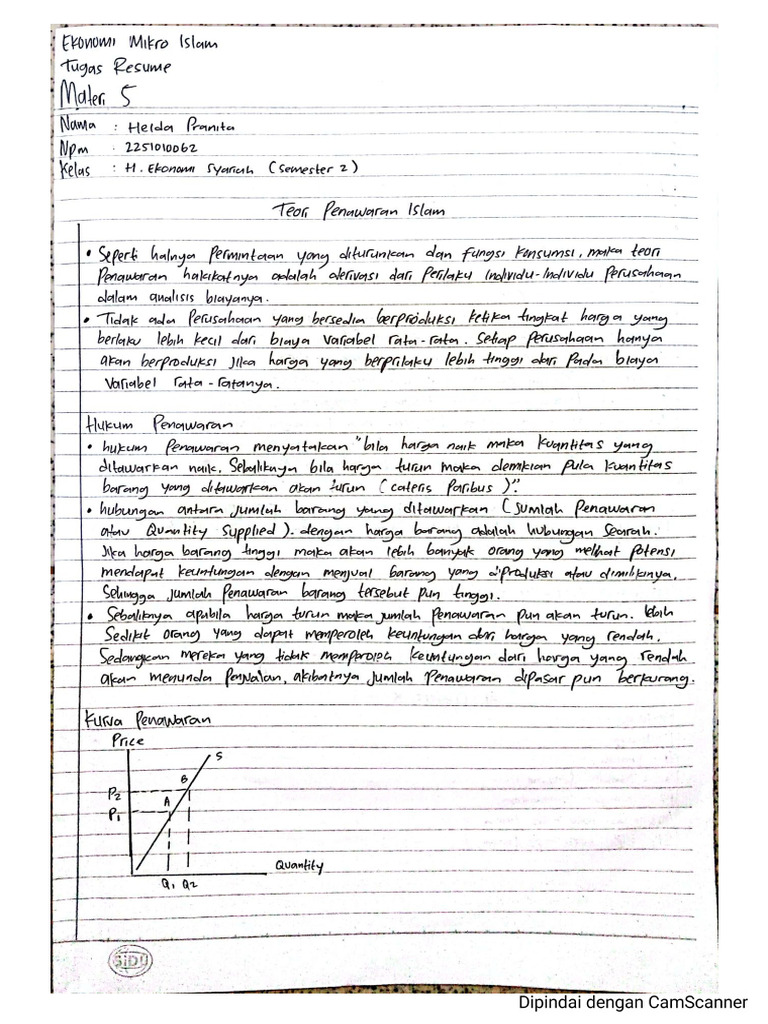 Ekonomi Mikro Islam
Tugas Resume
Materi 5
Nama : Helda Pranita
Npm : 2251010062
Kelas : H. Ekonomi Syariah (Semester 2)
Teori Penawaran Islam
• Seperti halnya permintaan yang diturunkan dan fungsi konsumsi, maka teori
Penawaran hakikatnya adalah derivasi dari Perilaku individu-individu perusahaan
dalam analisis biayanya.
• Tidak ada Perusahaan yang bersedia berproduksi ketika tingkat harga yang
berlaku lebih kecil dari biaya variabel rata-rata. Setiap Perusahaan hanya
akan berproduksi jika harga yang berprilaku lebih tinggi dari pada biaya
variabel rata-ratanya.
Hukum Penawaran
• hukum Penawaran menyatakan "bila harga naik maka kuantitas yang
ditawarkan naik, Sebaliknya bila harga turun maka demikian pula kuantitas
barang yang ditawarkan akan turun (cateris Paribus)".
• hubungan antara jumlah barang yang ditawarkan (jumlah Penawaran
atau Quantity Supplied). dengan harga barang adalah hubungan Searah.
Jika harga barang tinggi maka akan lebih banyak orang yang melihat potensi
mendapat keuntungan dengan menjual barang yang diproduksi atau dimilikinya,
Sehingga jumlah Penawaran barang tersebut pun tinggi.
• Sebaliknya apabila harga turun maka jumlah Penawaran pun akan turun. lebih
Sedikit orang yang dapat memperoleh keuntungan dari harga yang rendah,
Sedangkan mereka yang tidak memperoleh keuntungan dari harga yang rendah
akan menunda penjualan, akibatnya jumlah Penawaran dipasar pun berkurang.
Kurva Penawaran
Price
S
B
P2
A
P1
Quantity
Q1 Q2
SiDU
Dipindai dengan CamScanner